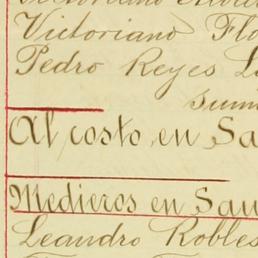 Victoriano Flo
Pedro Reyes L
Sum
Al costo en Sa
Medieros en San
Leandro Robles